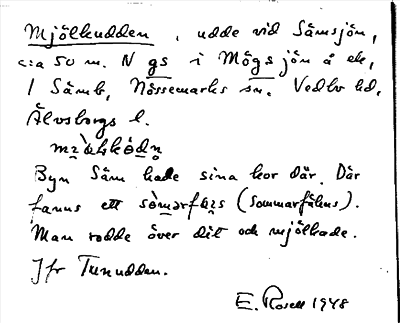 Mjölkudden, udde vid Sämsjön,
c:a 50 m. N gs i Mögsjön å ek,
1 Sämb, Nössemarks sn. Vedbo hd,
Älvsborgs l.
Byn Säm hade sina kor där. Där
fanns ett (sommarfähus).
Man rodde över dit och mjölkade.
Jfr Tunudden.
E. Rosell 1948